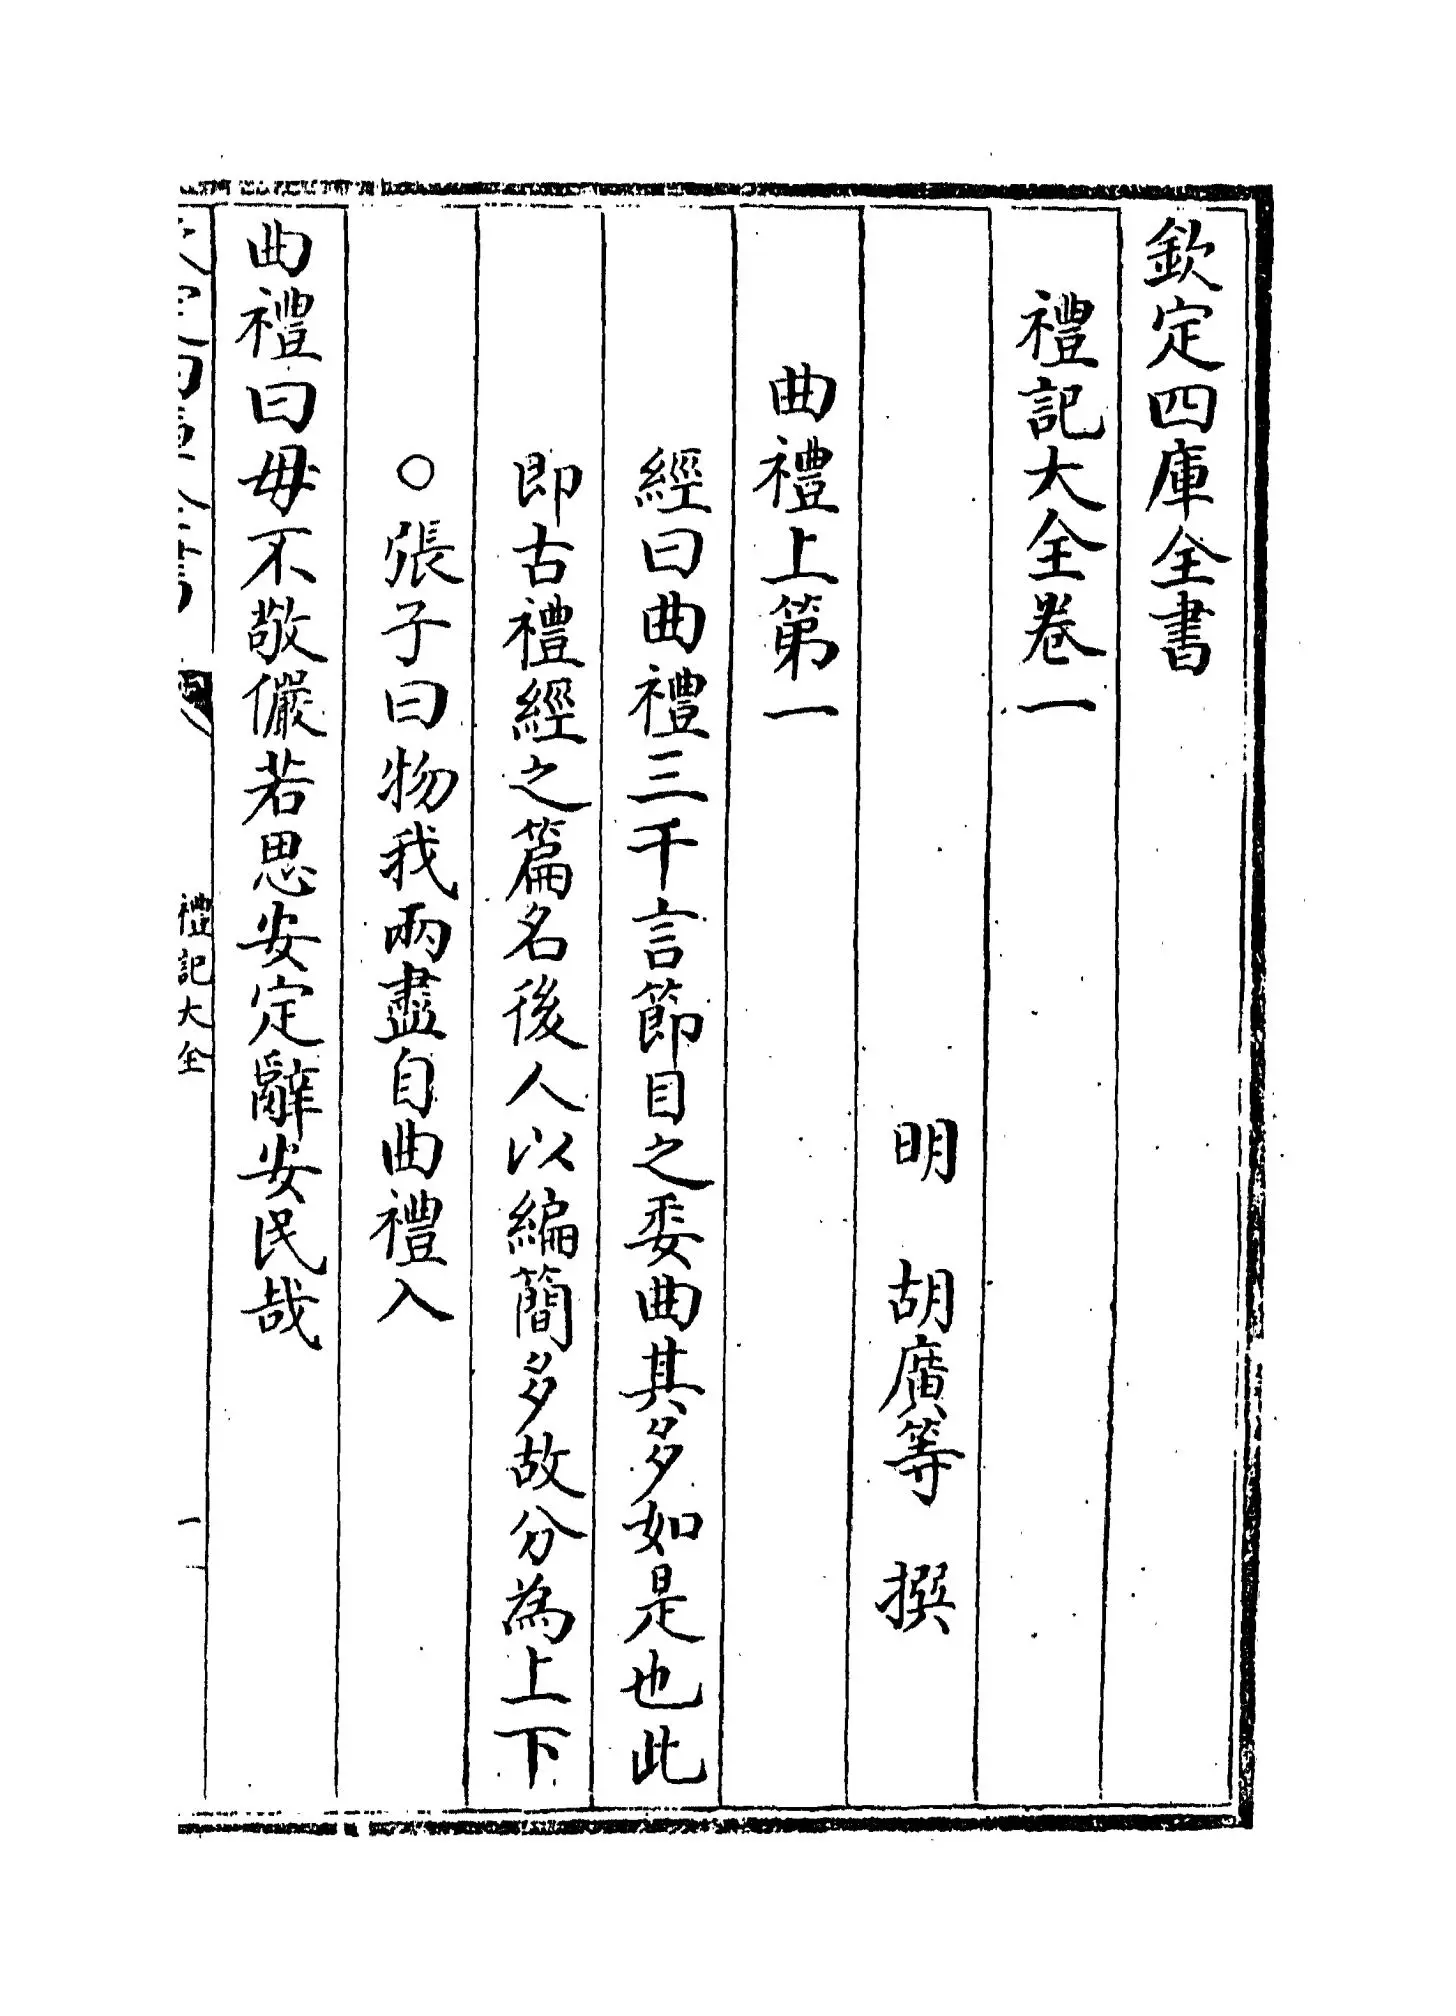 欽定四庫全書
禮記大全卷一
明 胡廣等 撰
曲禮上第一
經曰曲禮三千言節目之委曲其多如是也此
即古禮經之篇名後人以編簡多故分為上下
○張子曰物我兩盡自曲禮入
曲禮曰毋不敬儼若思安定辭安民哉
禮記大全
一